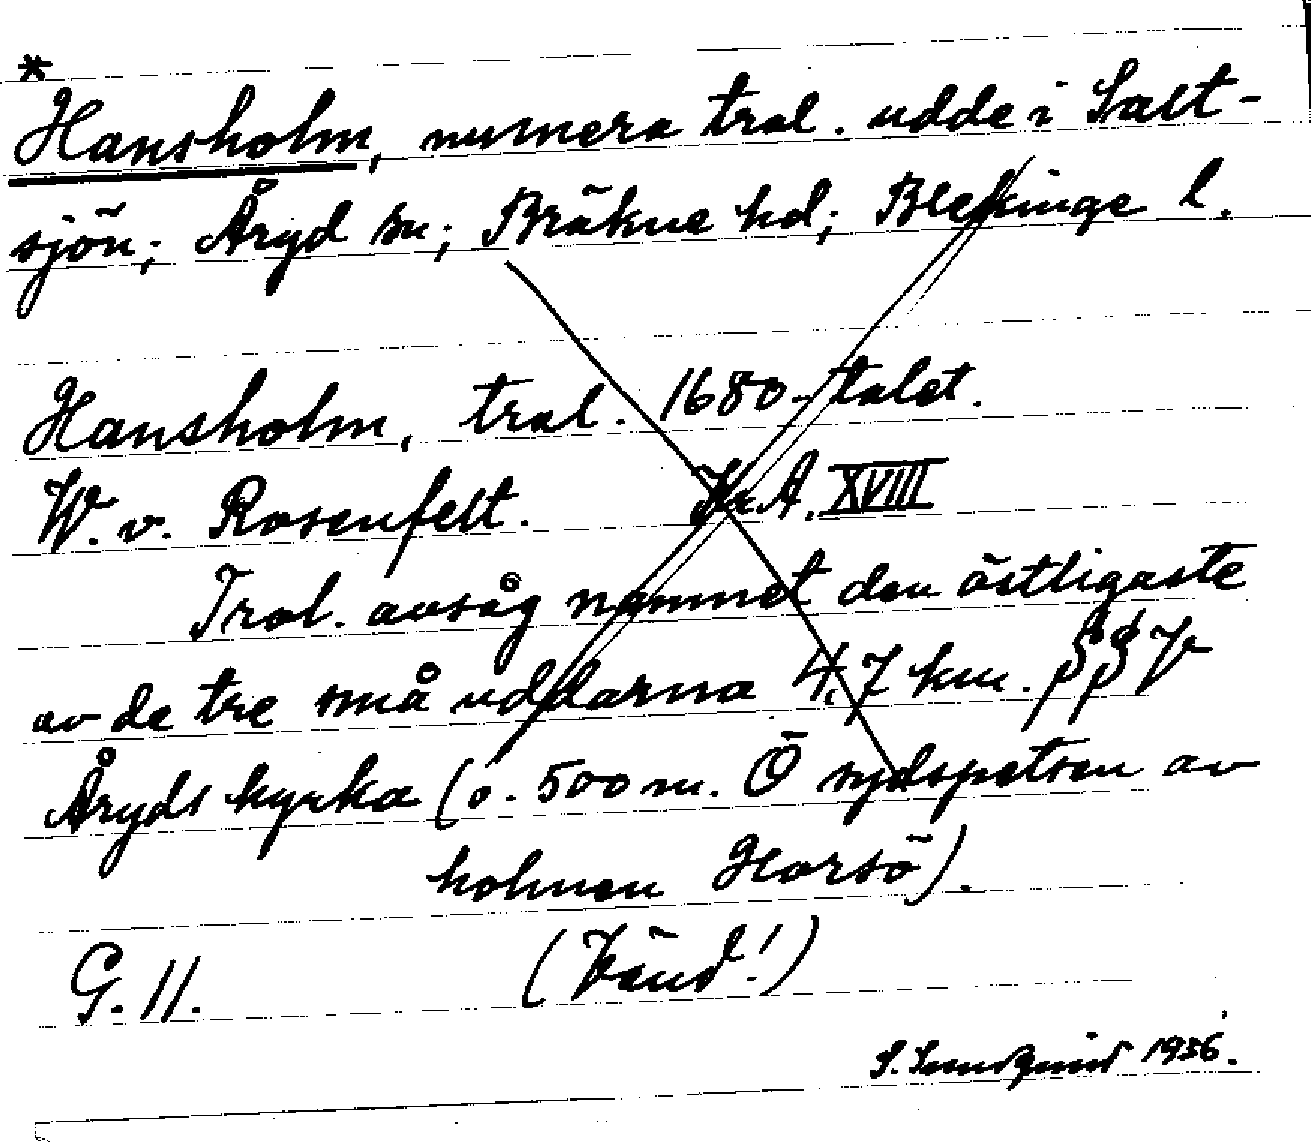 *
Hansholm, numera trol. udde i Salt-
sjön; Åryd sn; Bräkne hd; Blekinge l.
Hansholm, trol. 1680-talet.
W. v. Rosenfelt. Kr.A. XVIII
Trol. avsåg namnet den östligaste
av de tre små uddarna 4,7 km. SSV
Åryds kyrka (o. 500 m. Ö sydspetsen av
holmen Horsö).
G. 11. (Vänd!)
S. Sundquist 1936.